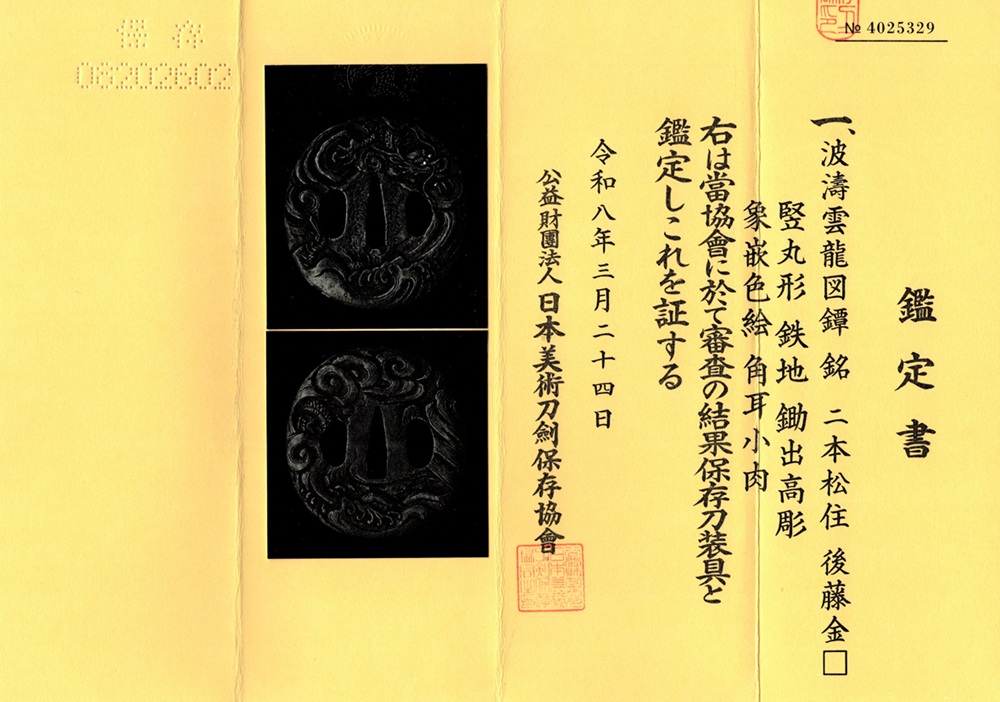 № 4025329
鑑定書
一、波濤雲龍図鐔 銘 二本松住 後藤金□
竪丸形 鉄地 鋤出高彫
象嵌色絵 角耳小肉
右は當協會に於て審査の結果保存刀装具と
鑑定しこれを証する
令和八年三月二十四日
公益財團法人 日本美術刀劍保存協會
保存
08202602